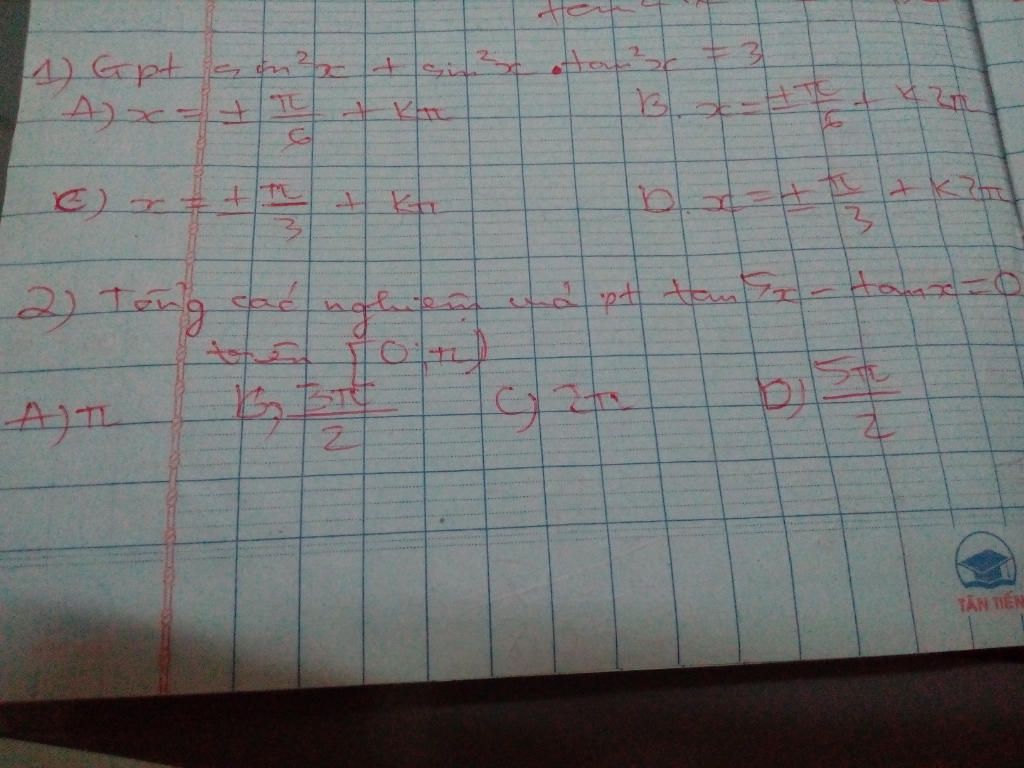 1) Gpt sin²x + sin²x . tan²x = 3
A) x = ± π/6 + kπ B. x = ± π/6 + k2π
C) x = ± π/3 + kπ D. x = ± π/3 + k2π
2) Tổng các nghiệm của pt tan5x - tanx = 0
trên [0; π)
A) π B, 3π/2 C) 2π D) 5π/2
TÂN TIẾN